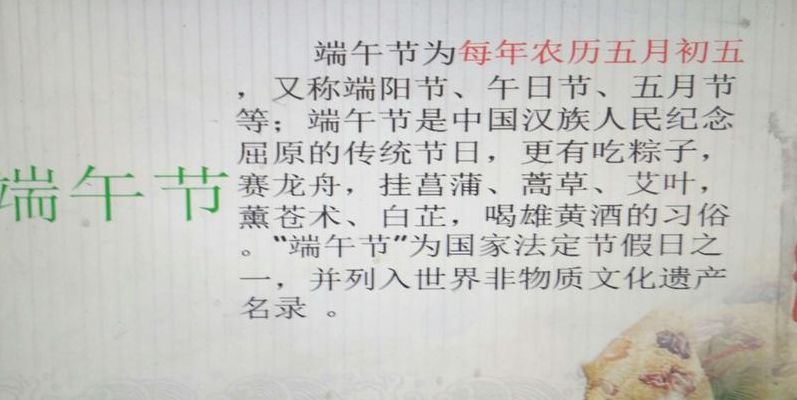 端午节
端午节为每年农历五月初五
，又称端阳节、午日节、五月节
等；端午节是中国汉族人民纪念
屈原的传统节日，更有吃粽子，
赛龙舟，挂菖蒲、蒿草、艾叶，
薰苍术、白芷，喝雄黄酒的习俗
。“端午节”为国家法定节假日之
一，并列入世界非物质文化遗产
名录 。